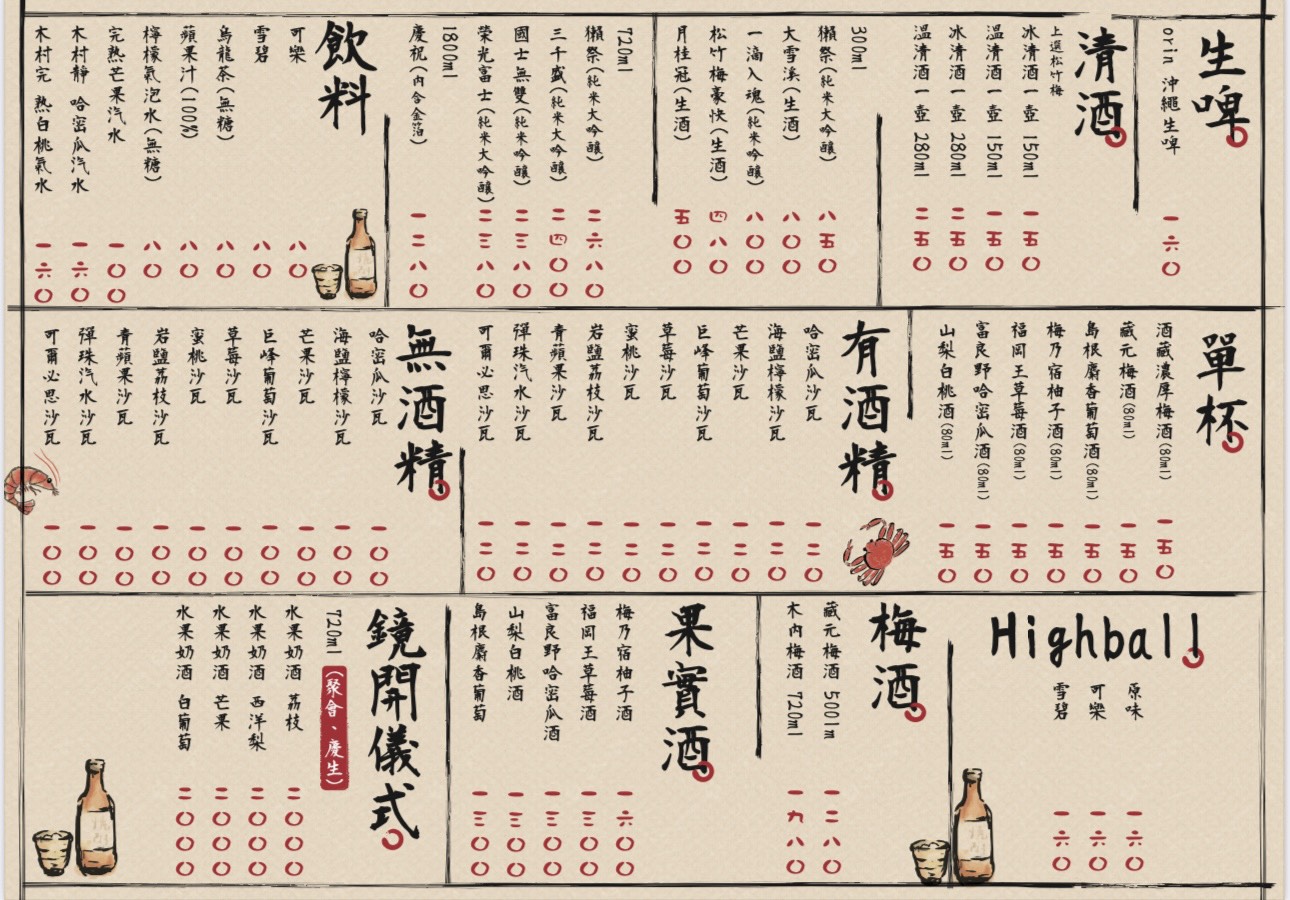 生啤
orin 沖繩生啤 一六〇
清酒
上選松竹梅
冰清酒一壺 150ml 一五〇
溫清酒一壺 150ml 一五〇
冰清酒一壺 280ml 二五〇
溫清酒一壺 280ml 二五〇
300ml
獺祭(純米大吟釀) 八五〇
大雪溪(生酒) 八〇〇
一滴入魂(純米吟釀) 八〇〇
松竹梅豪快(生酒) 四八〇
月桂冠(生酒) 五〇〇
720ml
獺祭(純米大吟釀) 二六八〇
三千盛(純米大吟釀) 二四〇〇
國士無雙(純米吟釀) 二三八〇
榮光富士(純米大吟釀) 二三八〇
1800ml
慶祝(內含金箔) 一二八〇
飲料
可樂 八〇
雪碧 八〇
烏龍茶(無糖) 八〇
蘋果汁(100%) 八〇
檸檬氣泡水(無糖) 八〇
完熟芒果汽水 一〇〇
木村靜 哈密瓜汽水 一六〇
木村完 熟白桃氣水 一六〇
單杯
酒藏濃厚梅酒(80ml) 一五〇
藏元梅酒(80ml) 一五〇
島根麝香葡萄酒(80ml) 一五〇
梅乃宿柚子酒(80ml) 一五〇
福岡王草莓酒(80ml) 一五〇
富良野哈密瓜酒(80ml) 一五〇
山梨白桃酒(80ml) 一五〇
有酒精
哈密瓜沙瓦 一二〇
海鹽檸檬沙瓦 一二〇
芒果沙瓦 一二〇
巨峰葡萄沙瓦 一二〇
草莓沙瓦 一二〇
蜜桃沙瓦 一二〇
岩鹽荔枝沙瓦 一二〇
青蘋果沙瓦 一二〇
彈珠汽水沙瓦 一二〇
可爾必思沙瓦 一二〇
無酒精
哈密瓜沙瓦 一〇〇
海鹽檸檬沙瓦 一〇〇
芒果沙瓦 一〇〇
巨峰葡萄沙瓦 一〇〇
草莓沙瓦 一〇〇
蜜桃沙瓦 一〇〇
岩鹽荔枝沙瓦 一〇〇
青蘋果沙瓦 一〇〇
彈珠汽水沙瓦 一〇〇
可爾必思沙瓦 一〇〇
Highball
原味 一六〇
可樂 一六〇
雪碧 一六〇
梅酒
藏元梅酒 500lm 一二八〇
木內梅酒 720ml 一九八〇
果實酒
梅乃宿柚子酒 一六〇〇
福岡王草莓酒 一三〇〇
富良野哈密瓜酒 一三〇〇
山梨白桃酒 一三〇〇
島根麝香葡萄 一三〇〇
鏡開儀式
720ml (聚會、慶生)
水果奶酒 荔枝 二〇〇〇
水果奶酒 西洋梨 二〇〇〇
水果奶酒 芒果 二〇〇〇
水果奶酒 白葡萄 二〇〇〇